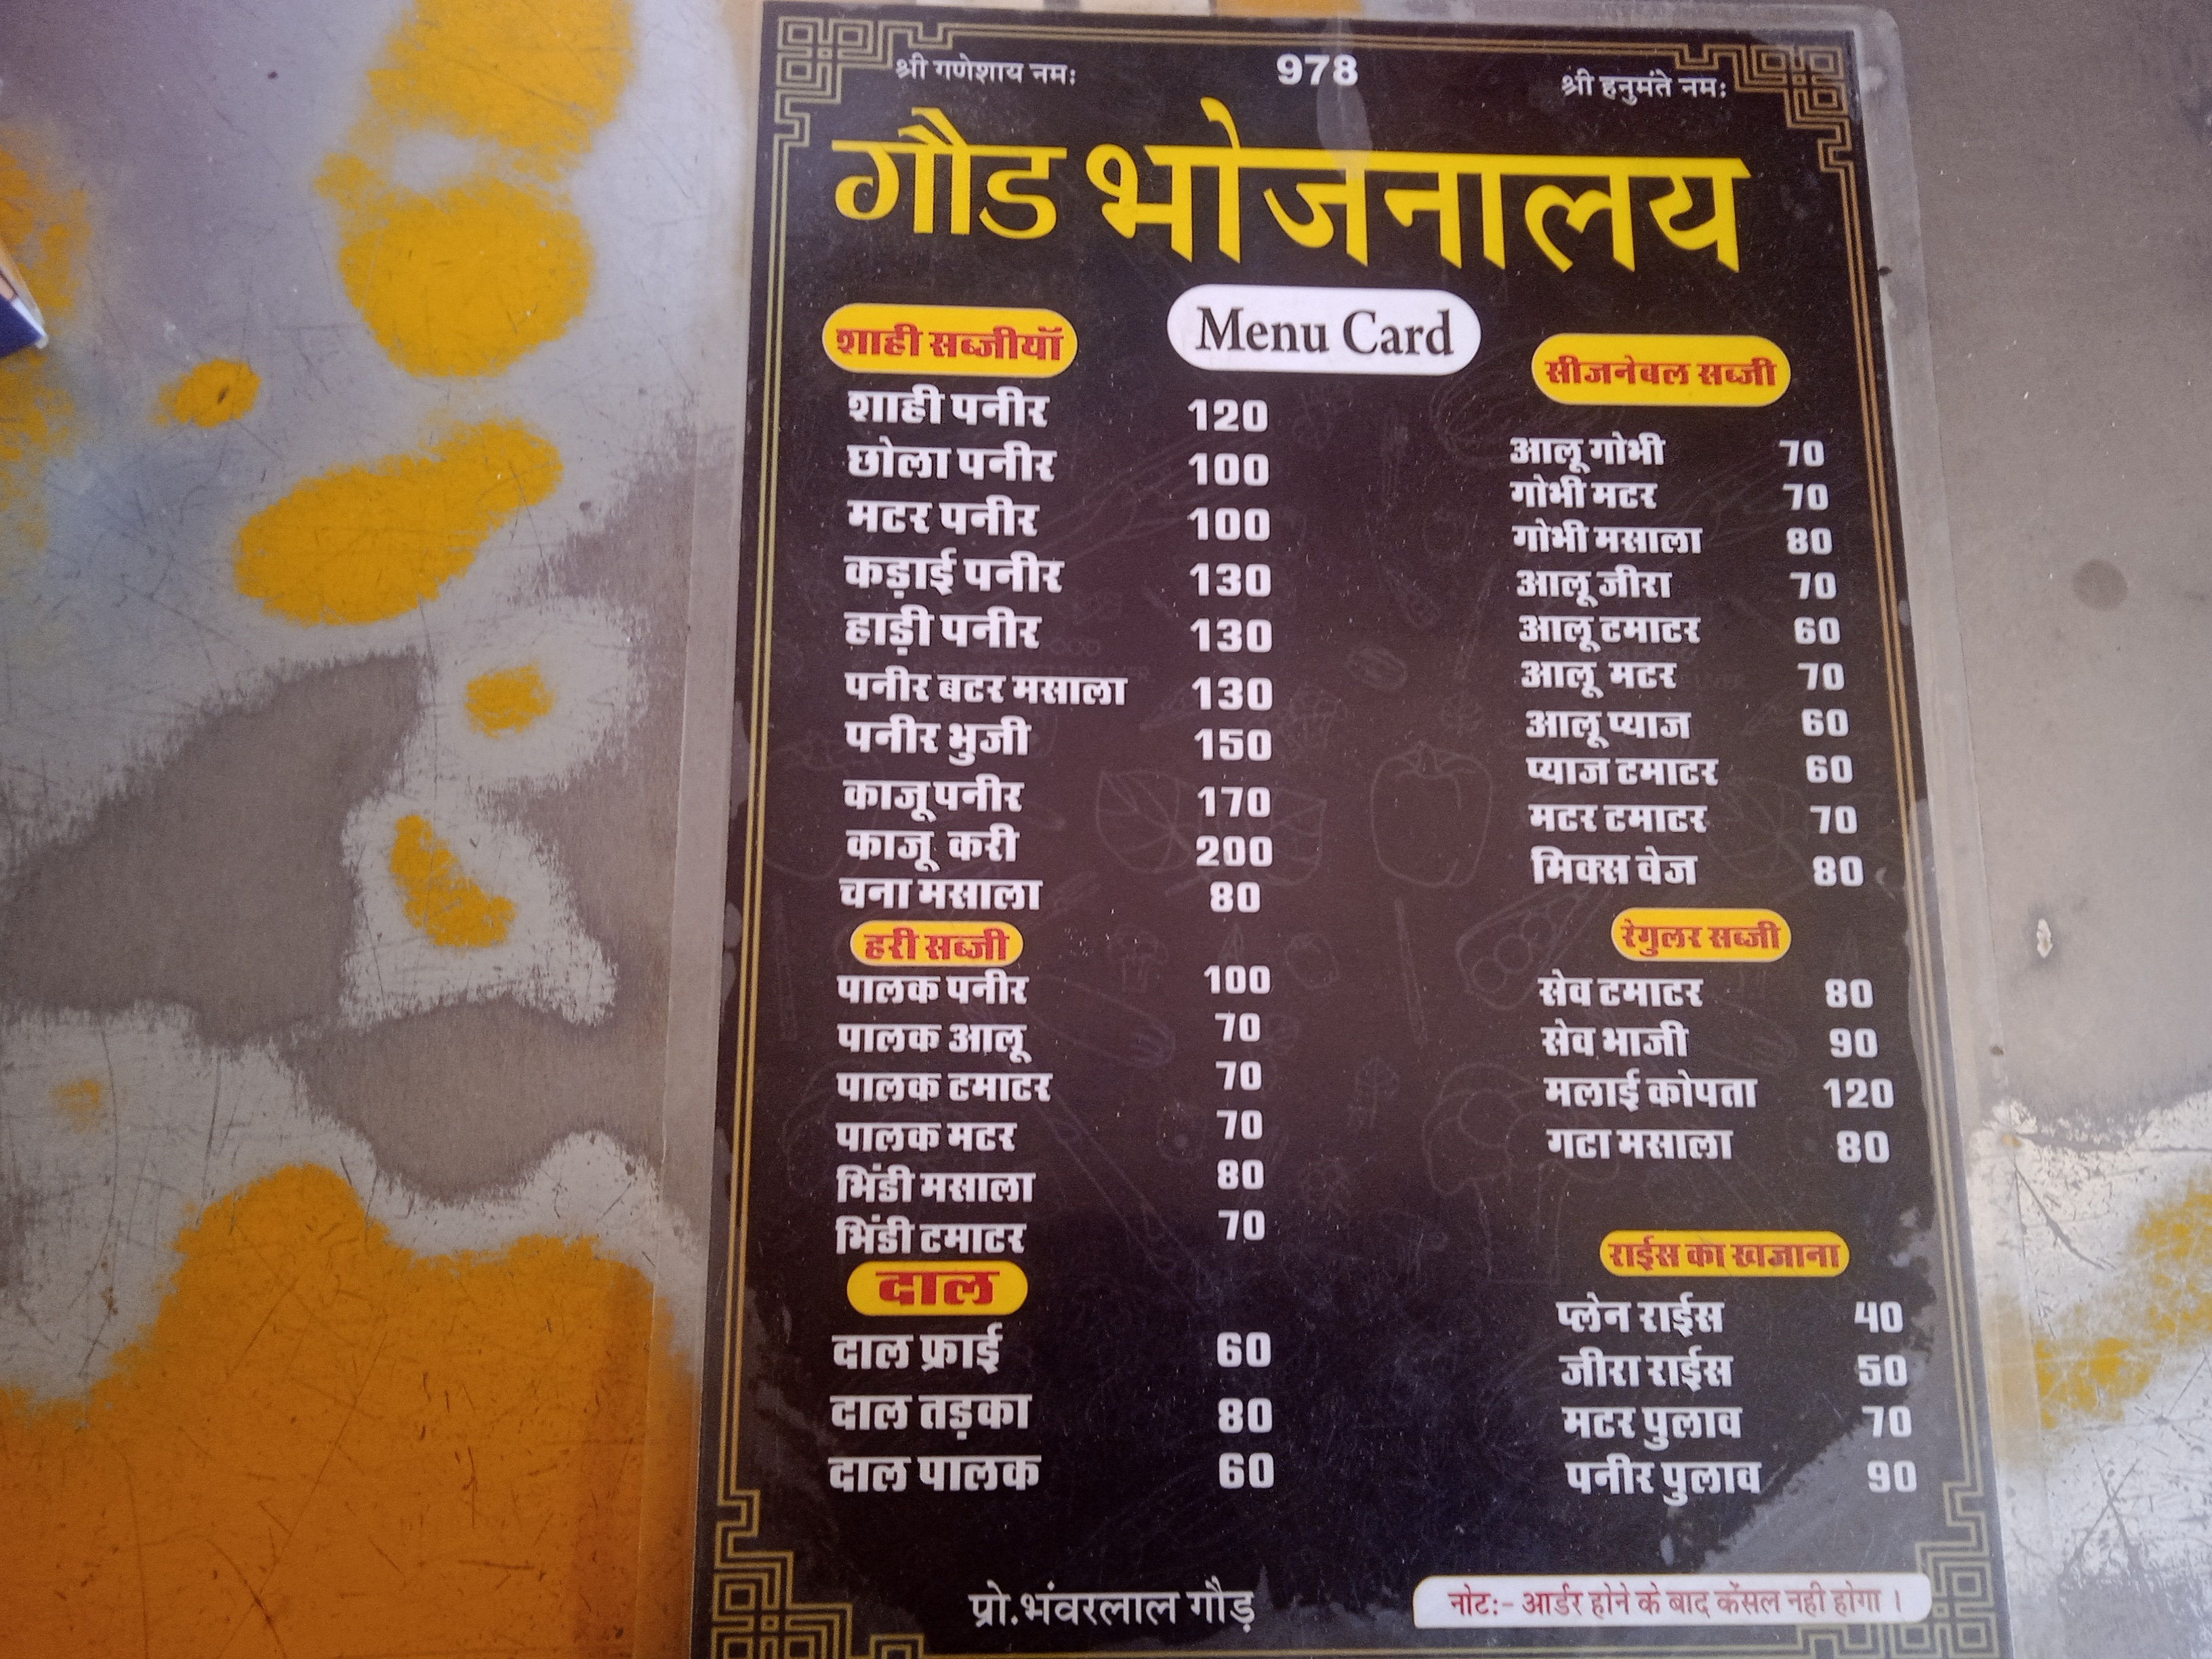 श्री गणेशाय नमः 978 श्री हनुमंते नमः
गौड भोजनालय
Menu Card
शाही सब्जीयॉ
शाही पनीर 120
छोला पनीर 100
मटर पनीर 100
कड़ाई पनीर 130
हाड़ी पनीर 130
पनीर बटर मसाला 130
पनीर भुजी 150
काजू पनीर 170
काजू करी 200
चना मसाला 80
हरी सब्जी
पालक पनीर 100
पालक आलू 70
पालक टमाटर 70
पालक मटर 70
भिंडी मसाला 80
भिंडी टमाटर 70
दाल
दाल फ्राई 60
दाल तड़का 80
दाल पालक 60
सीजनेबल सब्जी
आलू गोभी 70
गोभी मटर 70
गोभी मसाला 80
आलू जीरा 70
आलू टमाटर 60
आलू मटर 70
आलू प्याज 60
प्याज टमाटर 60
मटर टमाटर 70
मिक्स वेज 80
रेगुलर सब्जी
सेव टमाटर 80
सेव भाजी 90
मलाई कोपता 120
गटा मसाला 80
राईस का खजाना
प्लेन राईस 40
जीरा राईस 50
मटर पुलाव 70
पनीर पुलाव 90
प्रो.भंवरलाल गौड़
नोट:- आर्डर होने के बाद केंसल नही होगा ।